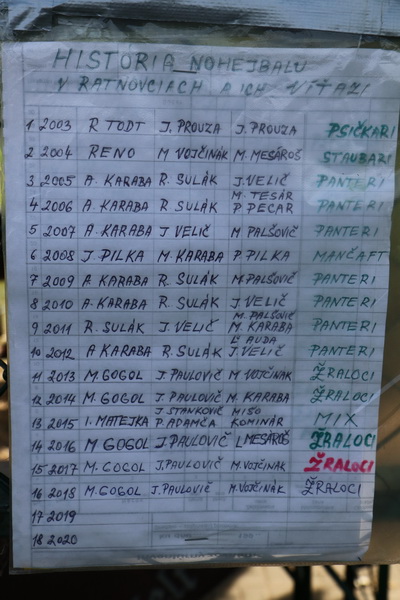 HISTORIA NOHEJBALU
V RATNOVCIACH A ICH VÍŤAZI
1 2003 R TODT J. PROUZA J. PROUZA PSIČKARI
2 2004 RENO M VOJČINÁK M. MESÁROŠ STAUBARI
3 2005 A. KARABA R. SULÁK J. VELIČ PANTERI
M. TESÁR
4 2006 A. KARABA R. SULÁK P. PECAR PANTERI
5 2007 A. KARABA J. VELIČ M PALŠOVIČ PANTERI
6 2008 J. PILKA M. KARABA P. PILKA MANČAFT
7 2009 A. KARABA R. SULÁK M. PALŠOVIČ PANTERI
8 2010 A. KARABA R. SULÁK J. VELIČ PANTERI
M. PALŠOVIČ
9 2011 R. SULÁK J. VELIČ M. KARABA PANTERI
Ľ. AUDA
10 2012 A KARABA R. SULÁK J. VELIČ PANTERI
11 2013 M. GOGOL J. PAULOVIČ M VOJČINAK ŽRALOCI
12 2014 M. GOGOL J. PAULOVIČ M. KARABA ŽRALOCI
J. STANKOVIČ MIŠO
13 2015 I. MATEJKA P. ADAMČA KOMINÁR MIX
14 2016 M GOGOL J PAULOVIČ L MESÁROŠ ŽRALOCI
15 2017 M. GOGOL J. PAULOVIČ M. VOJČINAK ŽRALOCI
16 2018 M. GOGOL J. PAULOVIČ M. VOJČINÁK ŽRALOCI
17 2019
18 2020